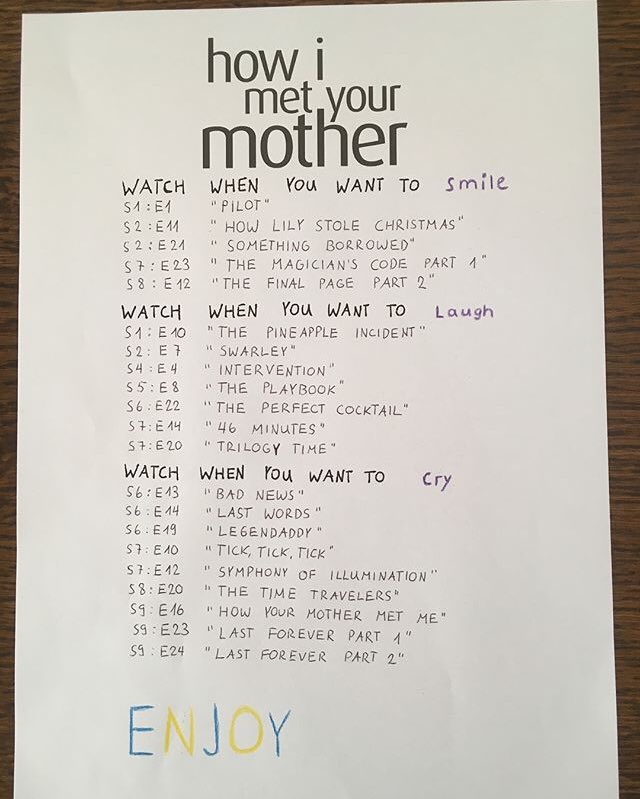 how i
met your
mother
WATCH WHEN YOU WANT TO smile
S1:E1 "PILOT"
S2:E11 "HOW LILY STOLE CHRISTMAS"
S2:E21 "SOMETHING BORROWED"
S7:E23 "THE MAGICIAN'S CODE PART 1"
S8:E12 "THE FINAL PAGE PART 2"
WATCH WHEN YOU WANT TO Laugh
S1:E10 "THE PINEAPPLE INCIDENT"
S2:E7 "SWARLEY"
S4:E4 "INTERVENTION"
S5:E8 "THE PLAYBOOK"
S6:E22 "THE PERFECT COCKTAIL"
S7:E14 "46 MINUTES"
S7:E20 "TRILOGY TIME"
WATCH WHEN YOU WANT TO Cry
S6:E13 "BAD NEWS"
S6:E14 "LAST WORDS"
S6:E19 "LEGENDADDY"
S7:E10 "TICK, TICK, TICK"
S7:E12 "SYMPHONY OF ILLUMINATION"
S8:E20 "THE TIME TRAVELERS"
S9:E16 "HOW YOUR MOTHER MET ME"
S9:E23 "LAST FOREVER PART 1"
S9:E24 "LAST FOREVER PART 2"
ENJOY